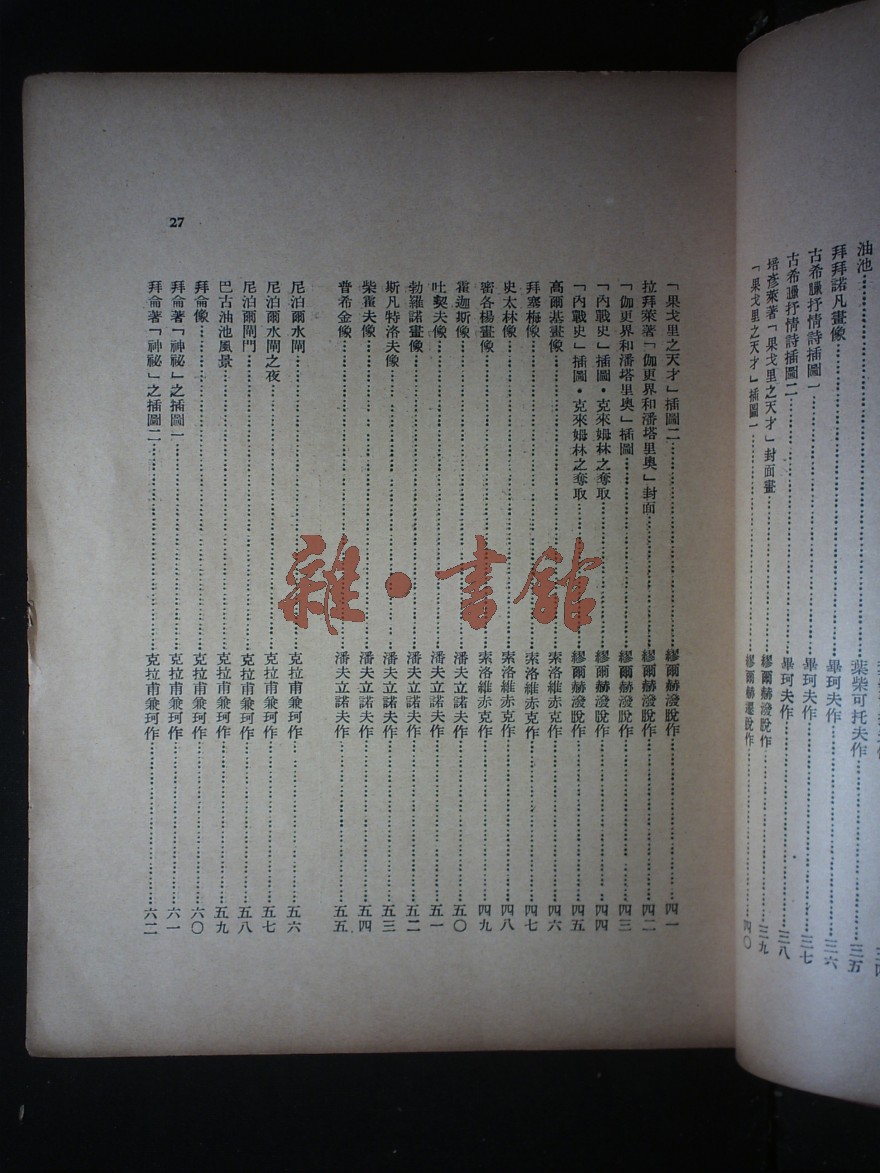 油池……葉柴可托夫作……三五
拜拜諾凡畫像……畢珂夫作……三六
古希臘抒情詩插圖一……畢珂夫作……三七
古希臘抒情詩插圖二……畢珂夫作……三八
塔彥萊著「果戈里之天才」封面畫……繆爾赫潑脫作……三九
「果戈里之天才」插圖一……繆爾赫潑脫作……四〇
「果戈里之天才」插圖二……繆爾赫潑脫作……四一
拉拜萊著「伽更界和潘塔里奥」封面……繆爾赫潑脫作……四二
「伽更界和潘塔里奥」插圖……繆爾赫潑脫作……四三
「內戰史」插圖・克來姆林之奪取……繆爾赫潑脫作……四四
「內戰史」插圖・克來姆林之奪取……繆爾赫潑脫作……四五
高爾基畫像……索洛維赤克作……四六
拜塞梅像……索洛維赤克作……四七
史太林像……索洛維赤克作……四八
密各楊畫像……索洛維赤克作……四九
霍迦斯像……潘夫立諾夫作……五〇
吐契夫像……潘夫立諾夫作……五一
勃羅諾畫像……潘夫立諾夫作……五二
斯凡特洛夫像……潘夫立諾夫作……五三
柴霍夫像……潘夫立諾夫作……五四
普希金像……潘夫立諾夫作……五五
尼泊爾水閘……克拉甫兼珂作……五六
尼泊爾水閘之夜……克拉甫兼珂作……五七
尼泊爾閘門……克拉甫兼珂作……五八
巴古油池風景……克拉甫兼珂作……五九
拜侖像……克拉甫兼珂作……六〇
拜侖著「神祕」之插圖一……克拉甫兼珂作……六一
拜侖著「神祕」之插圖二……克拉甫兼珂作……六二
27
雜・書館